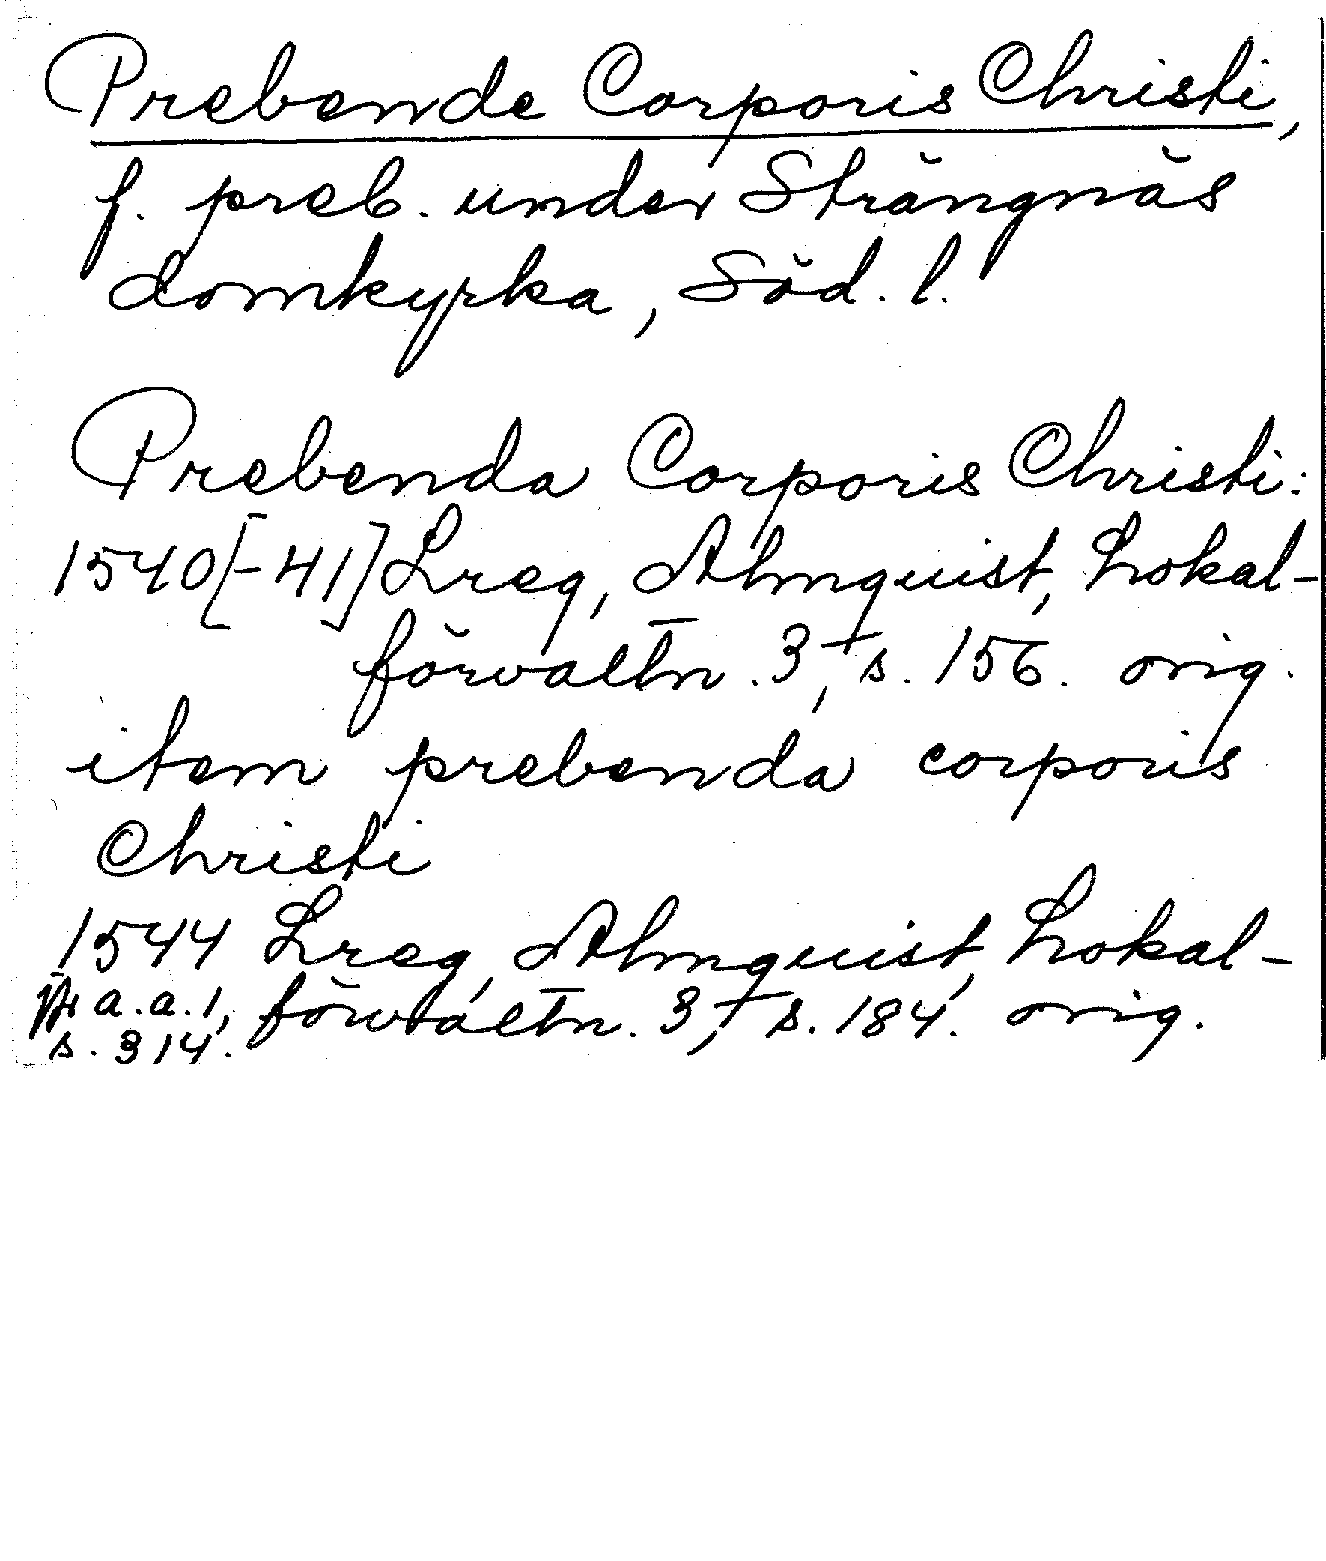 Prebende Corporis Christi,
f. preb. under Strängnäs
domkyrka, Söd. l.
Prebenda Corporis Christi:
1540[-41] Lreg, Almquist, Lokal-
förvaltn. 3, s. 156. orig.
item prebenda corporis
Christi
1544 Lreg, Almquist, Lokal-
förvaltn. 3, s. 184. orig.
a.a. 1,
s. 314.